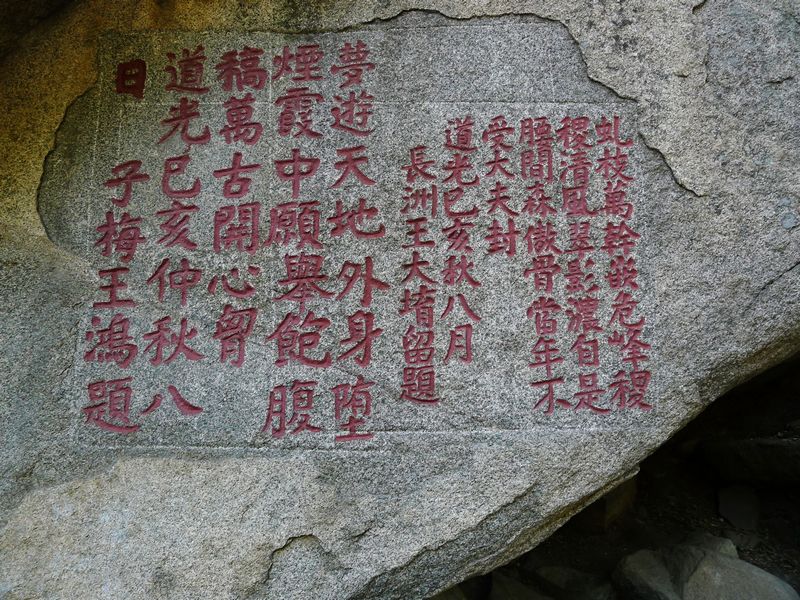 虬枝萬幹嵌危峰稷
稷清風翠影濃自是
腰間森傲骨當年不
受大夫封
道光巳亥秋八月
長洲王大堉留題
夢遊天地外身墮
煙霞中願舉飽腹
稿萬古開心胷
道光巳亥仲秋八
日
子梅王鴻題